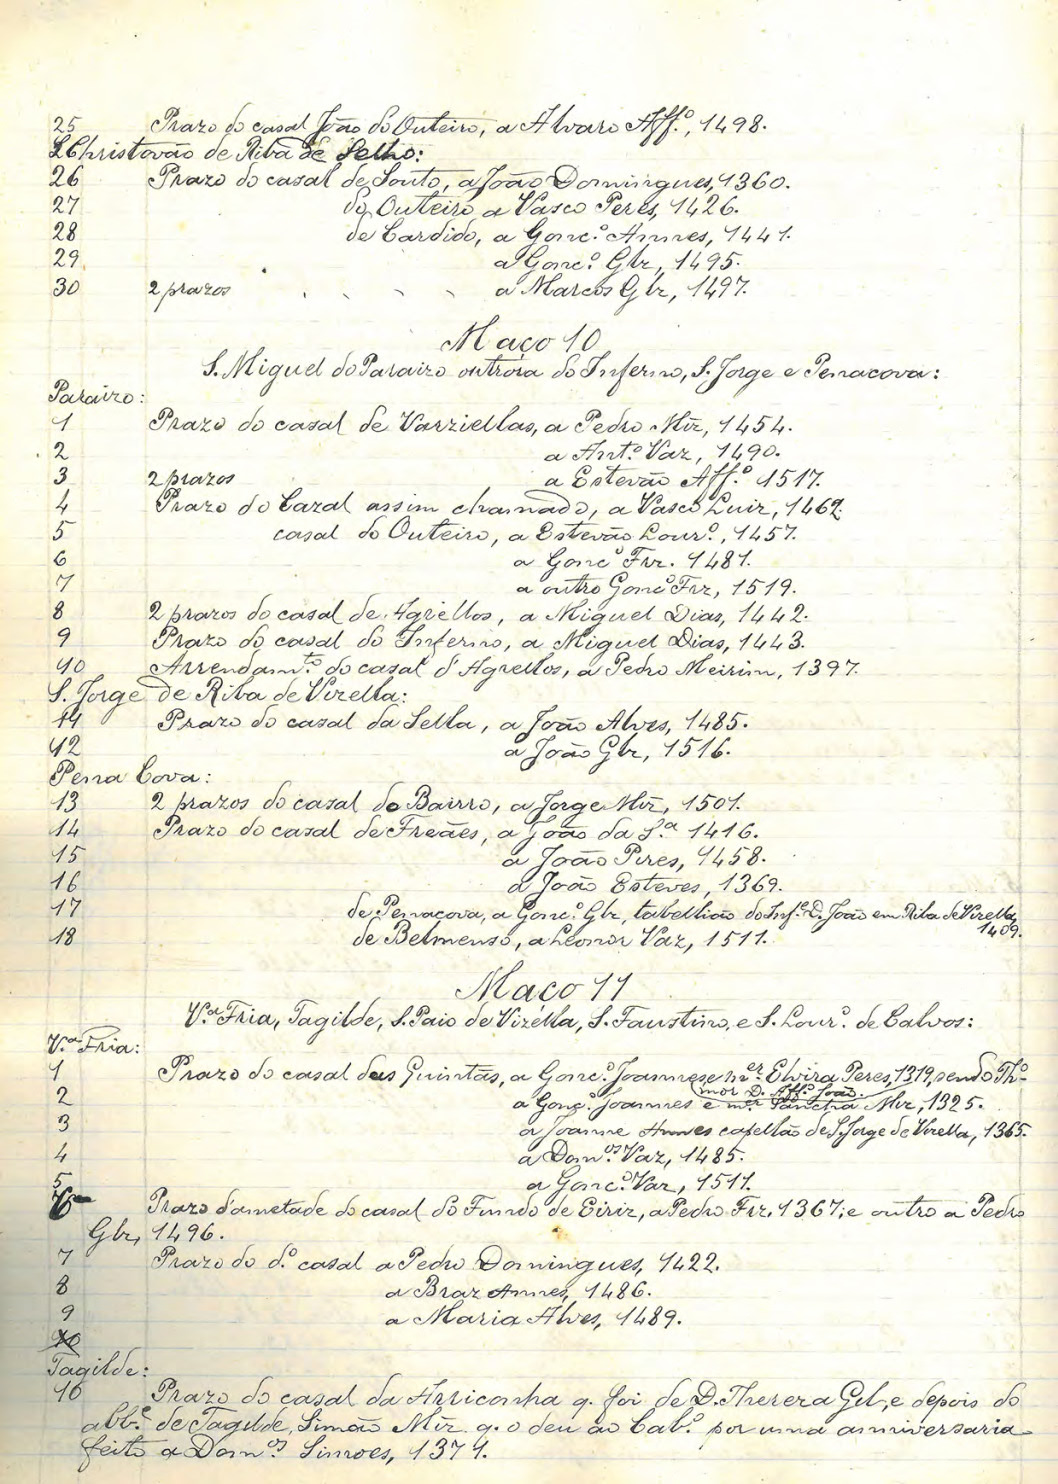 25 Prazo do casal João do Outeiro, a Alvaro Aff.º, 1498.
S. Christovão de Riba de Selho:
26 Prazo do casal de Souto, a João Domingues, 1360.
27 do Outeiro, a Vasco Peres, 1426.
28 de Cardido, a Gonc.º Annes, 1441.
29 a Gonc.º Glz, 1495.
30 2 prazos a Marcos Glz, 1497.
Maço 10
S. Miguel do Paraizo outróra do Inferno, S. Jorge e Penacova:
Paraizo:
1 Prazo do casal de Varziellas, a Pedro Miz, 1454.
2 a Ant.º Vaz, 1490.
3 2 prazos a Estevão Aff.º 1517.
4 Prazo do Cazal assim chamado, a Vasco Luiz, 1462.
5 casal do Outeiro, a Estevão Lour.º, 1457.
6 a Gonc.º Frz. 1481.
7 a outro Gonc.º Frz, 1519.
8 2 prazos do casal de Agrellos, a Miguel Dias, 1442.
9 Prazo do casal do Inferno, a Miguel Dias, 1443.
10 Arrendam.to do casal d'Agrellos, a Pedro Meirim, 1397.
S. Jorge de Riba de Vizella:
11 Prazo do casal da Sella, a João Alves, 1485.
12 a João Glz, 1516.
Pena Cova:
13 2 prazos do cazal do Bairro, a Jorge Miz, 1501.
14 Prazo do casal de Freães, a João da S.ª 1416.
15 a João Pires, 1458.
16 a João Esteves, 1369.
17 de Penacova, a Gonc.º Glz, tabellião do Inf.e D. João em Riba de Vizella,
1409.
18 de Belmenso, a Leonor Vaz, 1511.
Maço 11
V.ª Fria, Tagilde, S. Paio de Vizélla, S. Faustino, e S. Lour.º de Calvos:
V.ª Fria:
1 Prazo do casal das Quintãs, a Gonc.º Joannes e m.er Elvira Peres, 1319, sendo Th.º
mór D. Aff.º João.
2 a Gonç.º Joannes e m.er Sancha Miz, 1325.
3 a Joanne Annes capellão de S. Jorge de Vizella, 1365.
4 a Dom.os Vaz, 1485.
5 a Gonc.º Vaz, 1511.
6 Prazo d'ametade do casal do Fundo de Eiriz, a Pedro Frz, 1367; e outro a Pedro
Glz, 1496.
7 Prazo do d.º casal a Pedro Domingues, 1422.
8 a Braz Annes, 1486.
9 a Maria Alves, 1489.
10
Tagilde:
10 Prazo do casal da Arriconha q. foi de D. Thereza Gil, e depois do
abb.e de Tagilde, Simão Miz q. o deu ao Cab.º por uma anniversaria
feito a Dom.os Simoes, 1371.